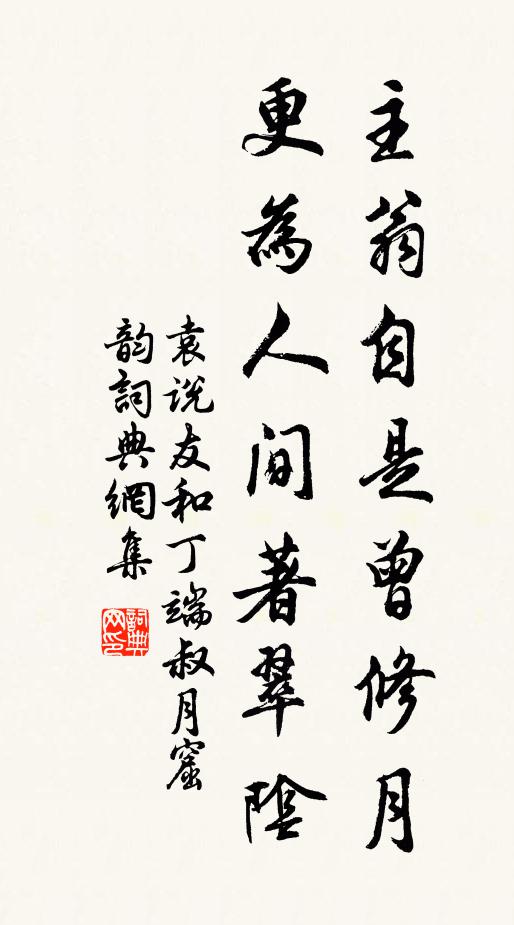 主翁自是曾修月
更為人間著翠陰
袁说友和丁端叔月窟
韵詞典網集
詞典
网印